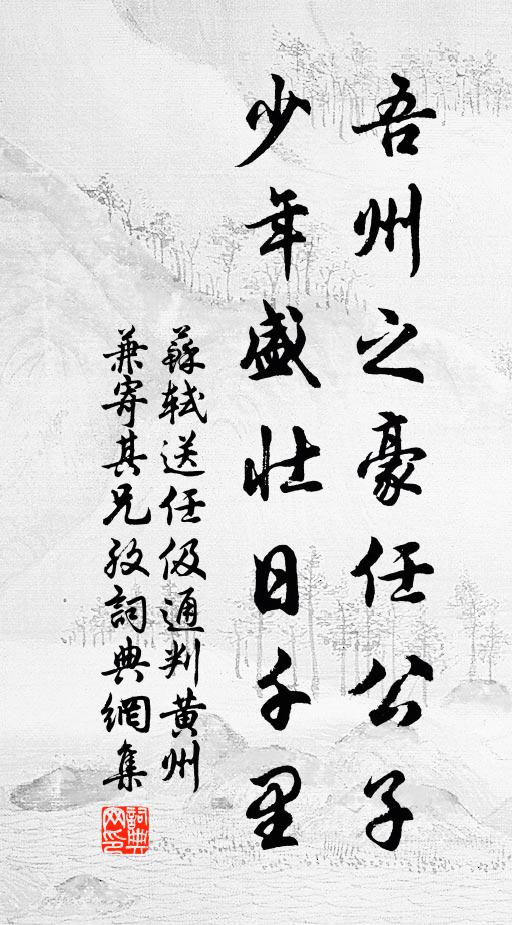 吾州之豪任公子
少年盛壯日千里
蘇軾送任伋通判黃州
兼寄其兄孜詞典網集
詞典
网印